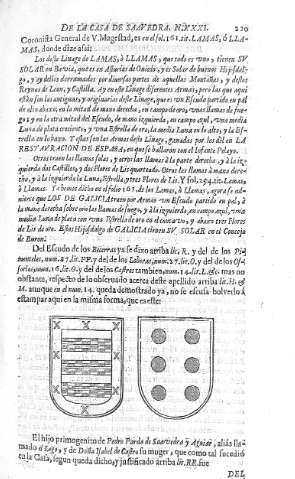 DE LA CASA DE SAAVEDRA. N.XXXI. 220
Coronista General de V. Magestad, es en el fol. 161. lit. LLAMAS, ò LLA-
MAS, donde dize assi:
Los deste Linage de LAMAS, ò LLAMAS, que todo es uno, tienen SV
SOLAR en
y de ellos derramados por diversas partes de aquellas Montañas, y destos
Reynos de Leon, y Castilla. Ay en este Linage diferentes Armas, pero las que aqui
estàn son las antiguas, y originarias deste Linage, que es un Escudo partido en pal
de alto abaxo, en la mitad de mano derecha, en campo de oro, unas llamas de fue-
go, y en la otra mitad del Escudo, de mano izquierda, en campo azul, una media
Luna de plata creciente, y una Estrella de oro, la media Luna en lo alto, y la Es-
trella en lo baxo. Y estas son las Armas deste Linage, ganadas por los del en LA
RESTAVRACION DE ESPAÑA, en que se hallaron con el Infante Pelayo.
Otros traen las llamas solas, y otros las llamas à la parte derecha, y à la iz-
quierda dos Castillos, y dos Flores de Lis Otras las llamas à mano dere-
cha, y à la izquierda la Luna, Estrella, y tres Flores de Lis. Y fol. 254. lit. Lamas,
ò Llamas. Ya hemos dicho en el folio 161 de los Lamas, ò Llamas, agora se ad-
vierte que LOS DE GALICIA traen por Armas un Escudo partido en pal, à
la mano derecha sobre oro las llamas de fuego, y à la izquierda, en campo azul, una
media Luna de plata con una Estrella de oro en el
Lis de oro. Estos Hijosdalgo de GALICIA tienen SV SOLAR en el Concejo
de
Del Escudo de los ya se dixo arriba lit. R. y del de los Pi-
mentel, num. 27. lit. FF. y del de los num. 27. lit. O. y del de los Os-
sorios, num. 16. lit. G. y del de los Castros tambien, num. 14. lit. L. &c. mas no
obstante, respeto de lo observado acerca deste apellido arriba lit. H. &
M. aunque en el num. 14. queda demostrado ya, no se escusa bolverlo à
estampar aqui en la misma forma, que es este:
El hijo primogenito de Pedro Pardo de Saavedra y Aguiar, alias lla-
mado el Zago, y de Doña Isabel de Castro su muger, que como tal sucediò
en la Casa, segun queda dicho, y justificado arriba lit. RR. fue
DEL